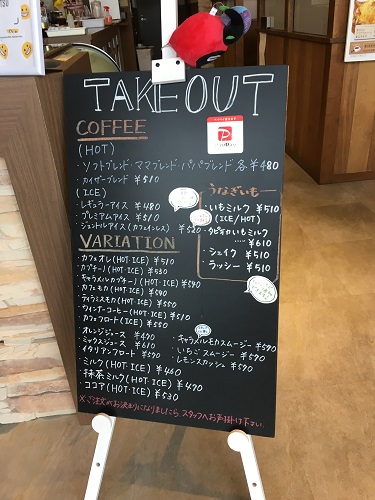 TAKE OUT
COFFEE
(HOT)
・ソフトブレンド・ママブレンド・パパブレンド 各¥480
・カイザーブレンド ¥510
(ICE)
・レギュラーアイス ¥480
・プレミアムアイス ¥510
・ジェントルアイス(カフェインレス) ¥520
うなぎいも
・いもミルク ¥510
(ICE/HOT)
・タピオカいもミルク
¥610
・シェイク ¥510
・ラッシー ¥510
PayPay
VARIATION
・カフェオレ(HOT・ICE) ¥510
・カプチーノ(HOT・ICE) ¥530
・キャラメルカプチーノ(HOT・ICE) ¥590
・カフェモカ(HOT・ICE) ¥590
・ティラミスモカ(HOT・ICE) ¥550
・ウィンナーコーヒー(HOT・ICE) ¥510
・カフェフロート(ICE) ¥550
・オレンジジュース ¥490
・ミックスジュース ¥610
・イタリアンフロート ¥590
・キャラメルモカスムージー ¥590
・いちごスムージー ¥590
・レモンスカッシュ ¥590
・ミルク(HOT・ICE) ¥460
・抹茶ミルク(HOT・ICE) ¥490
・ココア(HOT・ICE) ¥530
※ご注文がお決まりになりましたら スタッフへお声掛け下さい。